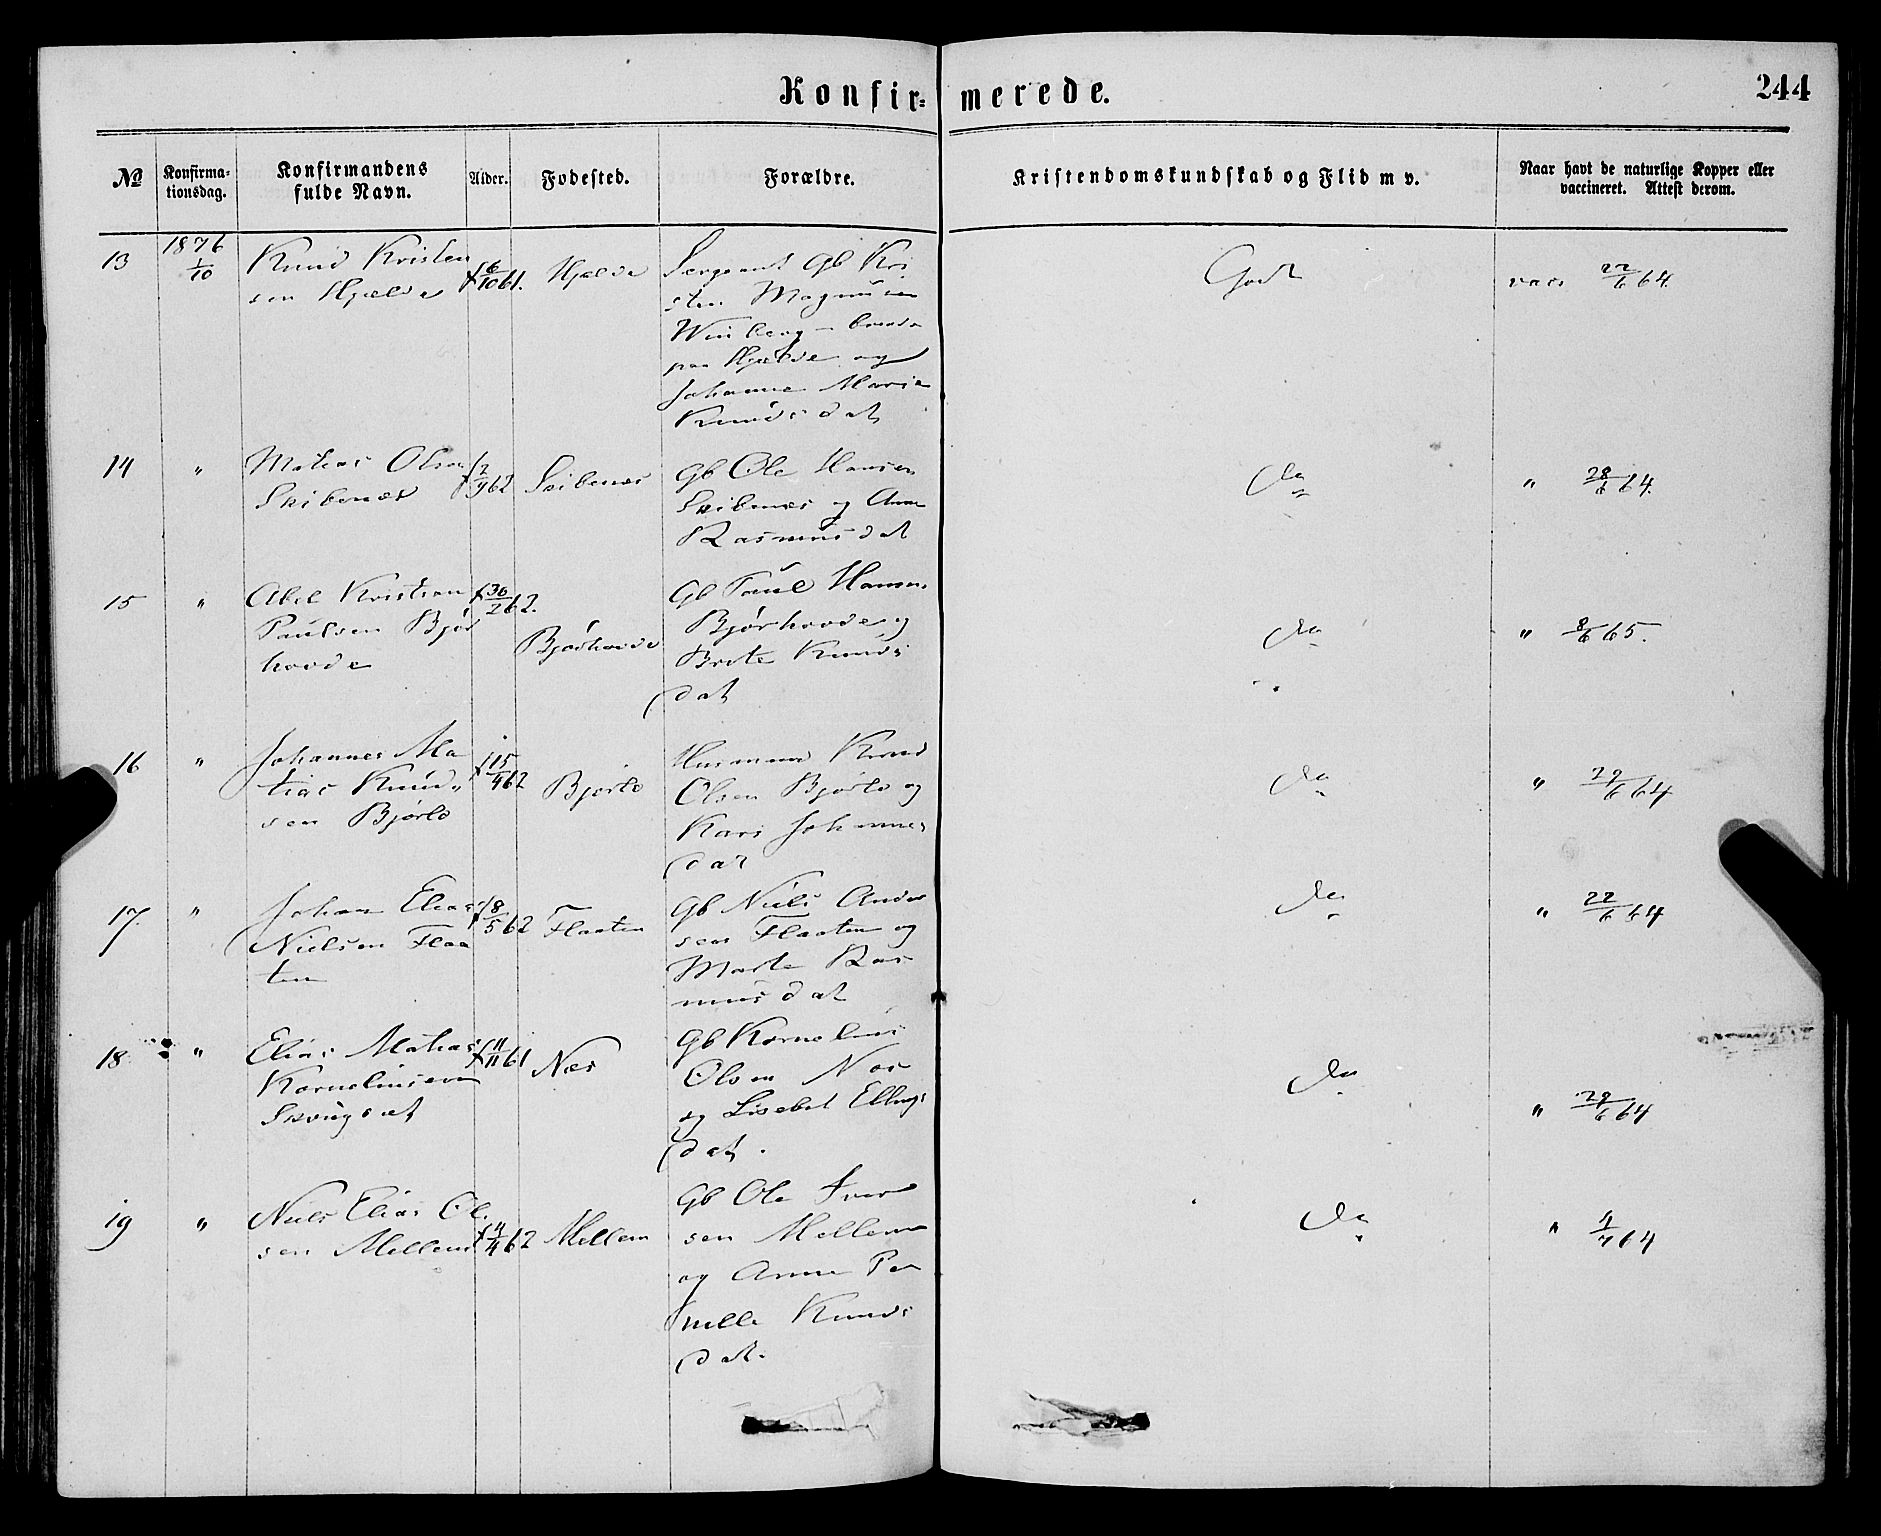 Konfir= merede.
244
№
Konfirma=
tionsdag.
Konfirmandens
fulde Navn.
Alder.
Fødested.
Forældre.
Kristendomskundskab og Flid m v.
Naar havt de naturlige Kopper eller
vaccineret. Attest derom.
13
1876
1/10
Knud Kristen
sen Hjelde
f 6/10 61.
Hjelde
Sergeant Gb Kri
sten Magnusen
Winberg – boende
paa Hjelde og
Johanne Marie
Knudsdat
Godt
vac. 22/6 64.
14
"
Matias Olsen
Skibenæs
f 2/9 62
Skibenæs
Gb Ole Hansen
Skibenæs og Anne
Rasmusdat
do
" 28/6 64.
15
"
Abel Kristian
Paulsen Bjør
hovde
f 30/2 62.
Bjørhovde
Gb Paul Hansen
Bjørhovde og
Brite Knuds
dat
do
" 8/6 65.
16
"
Johannes Ma
tias Knud„
sen Bjørlo
f 15/4 62
Bjørlo
Husmand Knud
Olsen Bjørlo og
Kari Johannes
dat
do
" 22/6 64
17.
"
Johan Elias
Nielsen Flaa
ten
f 8/5 62
Flaaten
Gb Niels Ander
sen Flaaten og
Marte Ras
musdat
do
" 22/6 64
18
"
Elias Matias
Korneliussen
f 11/11 61
Næs
Gb Kornelius
Olsen Næs
og Lisebet Ellings
dat.
do
" 22/6 64
19
"
Niels Elias Ol
sen Mellem
f 4/4 62
Mellem
Gb Ole Iver
sen Mellem
og Anne Per
nelle Knuds
dat.
do
" 1/7 64